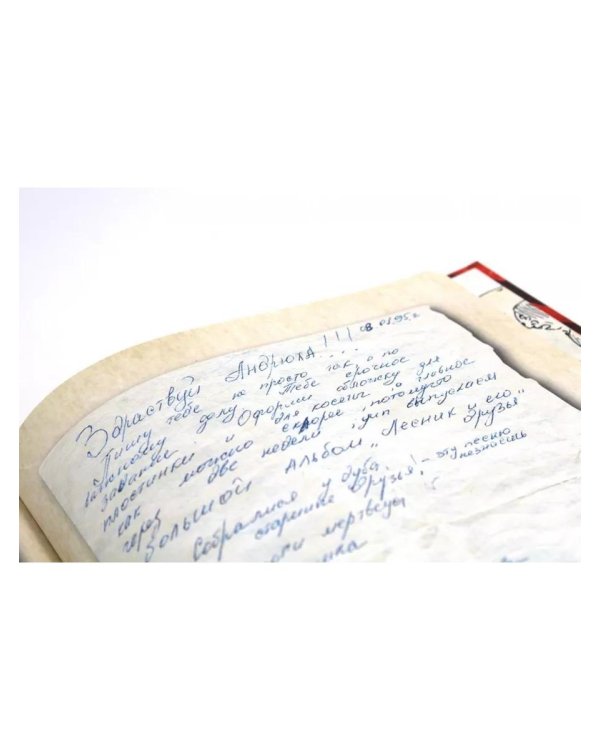 Здраствуй Андрюха!!! 08.05.95г.
Пишу тебе не просто так а по
делу.... Тебе срочное
задание Оформи обложку для
пластинки и для косеты, а главное
как можно скорее, потомучто
через две недели мы выпускаем
Большой Альбом „Лесник и его
друзья"
Собрались у дуба,
старенние друзья! - эту песню
познаешь
мертведы